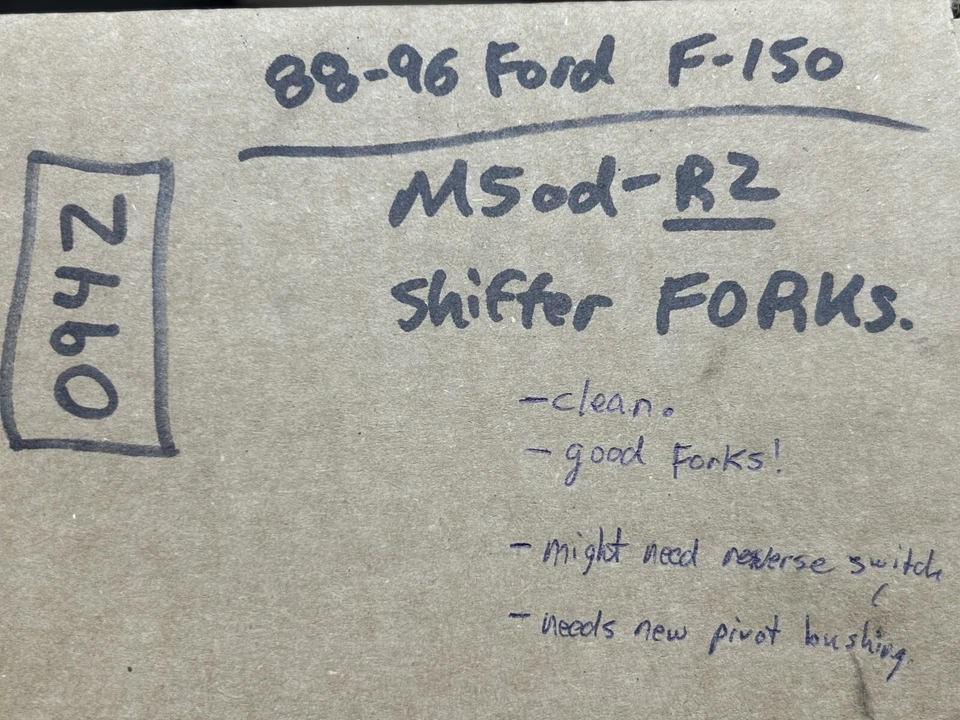 88-96 Ford F-150
M5od-R2
Shifter FORKS.
0942
-clean.
- good Forks!
- might need reverse switch
- needs new pivot bushing.